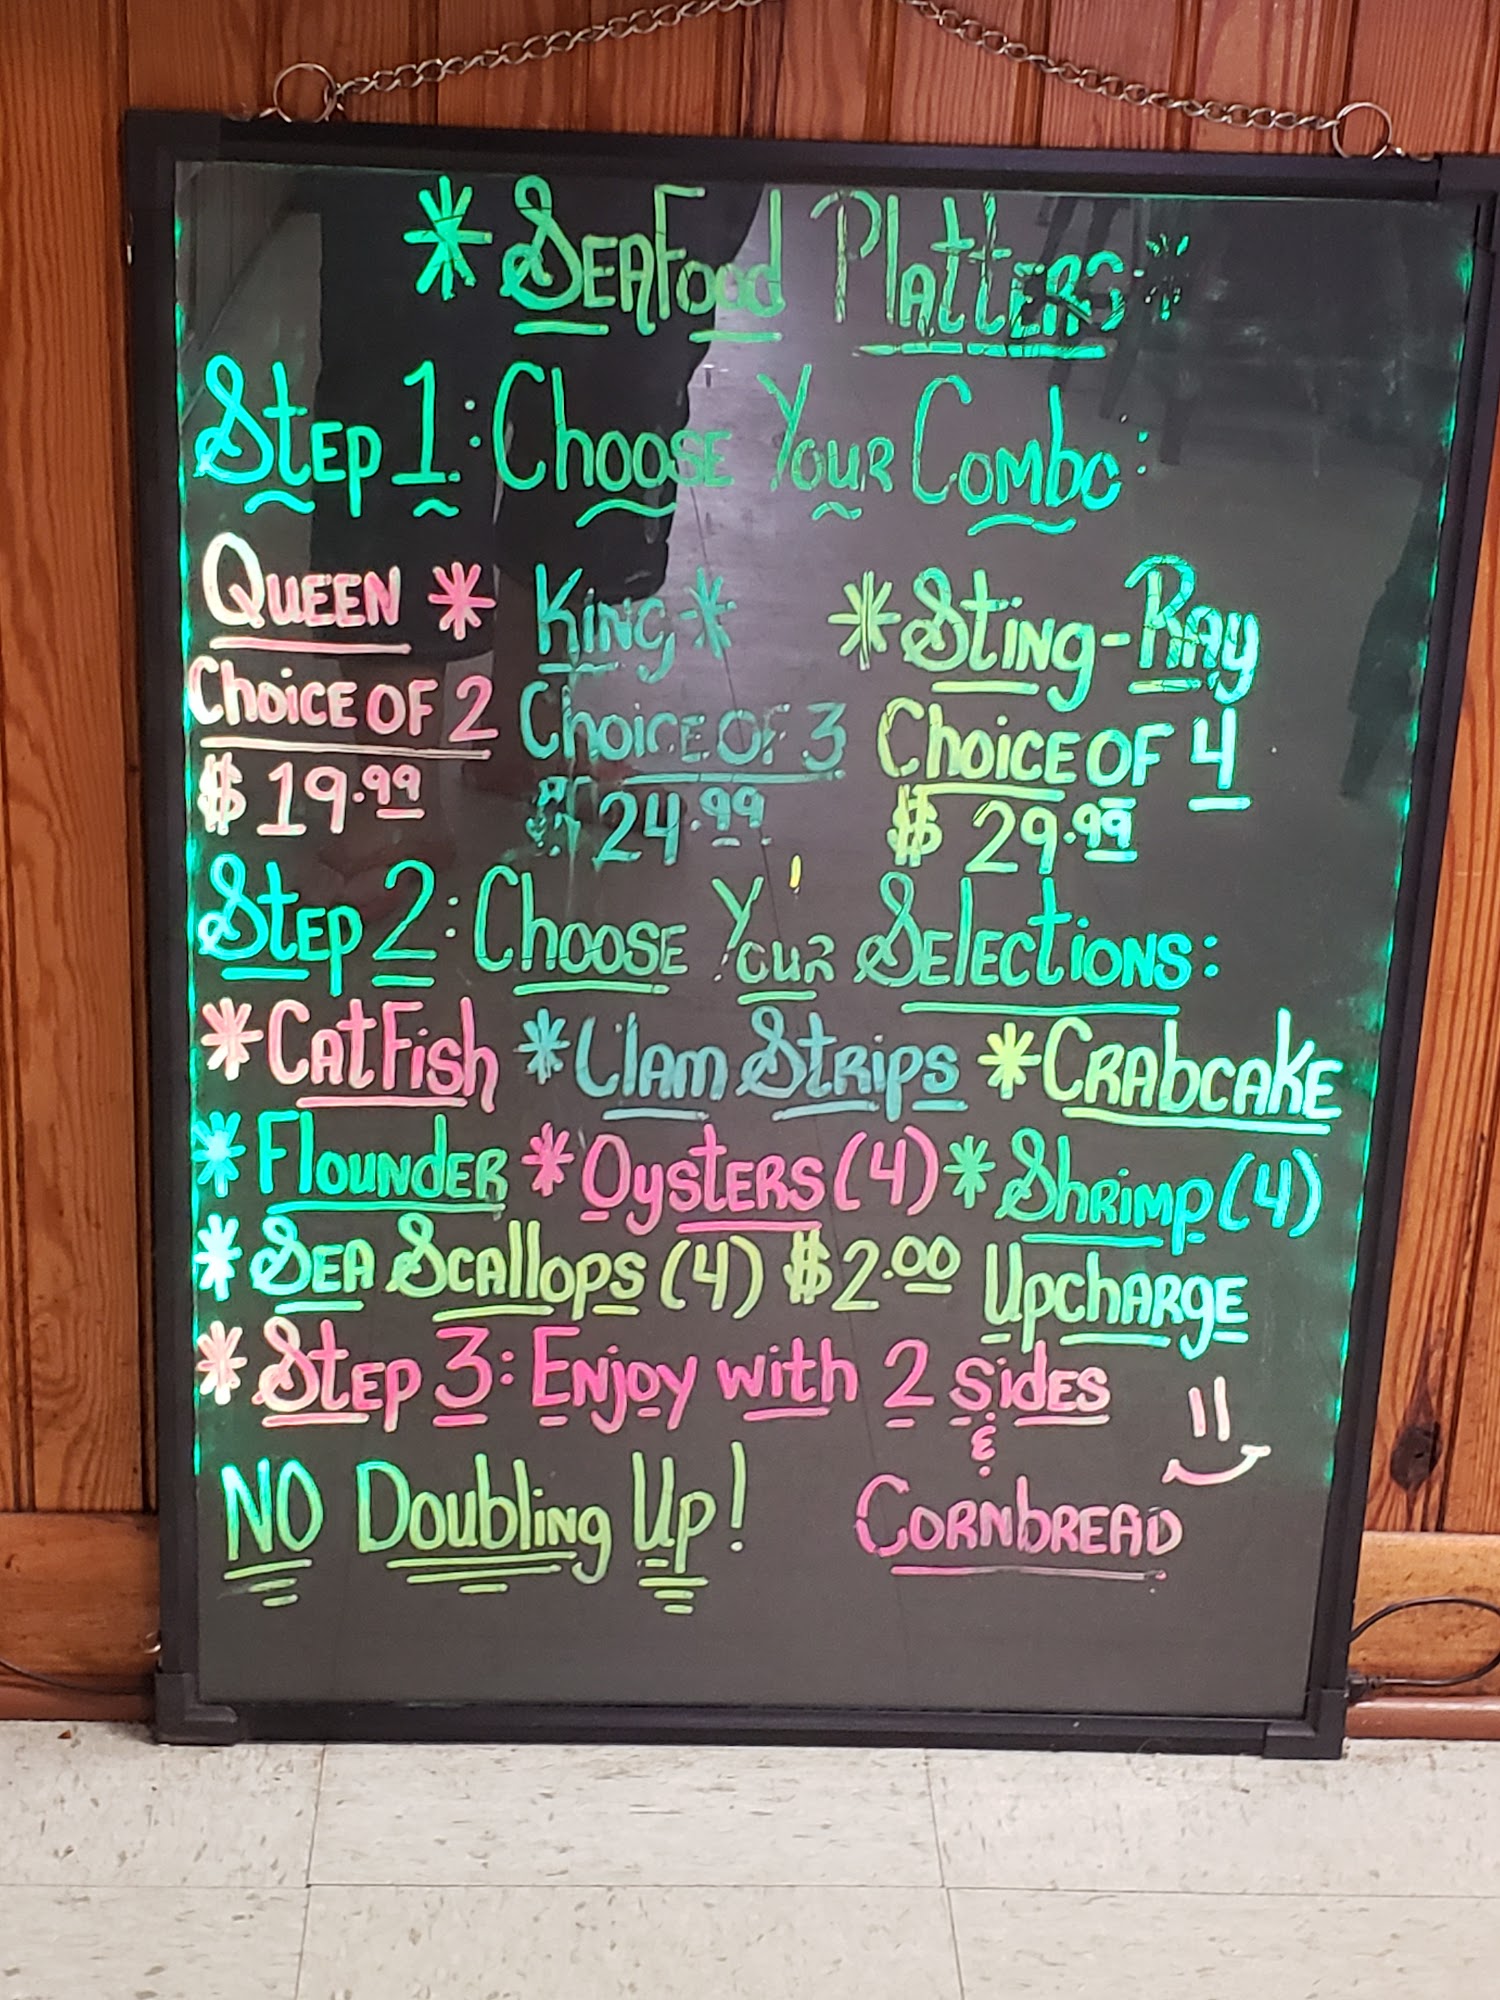 * Seafood Platters *
Step 1: Choose Your Combo:
Queen * King * * Sting-Ray
Choice of 2 Choice of 3 Choice of 4
$19.99 $24.99 $29.99
Step 2: Choose Your Selections:
* Catfish * Clam Strips * Crabcake
* Flounder * Oysters (4) * Shrimp (4)
* Sea Scallops (4) $2.00 Upcharge
* Step 3: Enjoy with 2 sides
&
NO Doubling Up! Cornbread